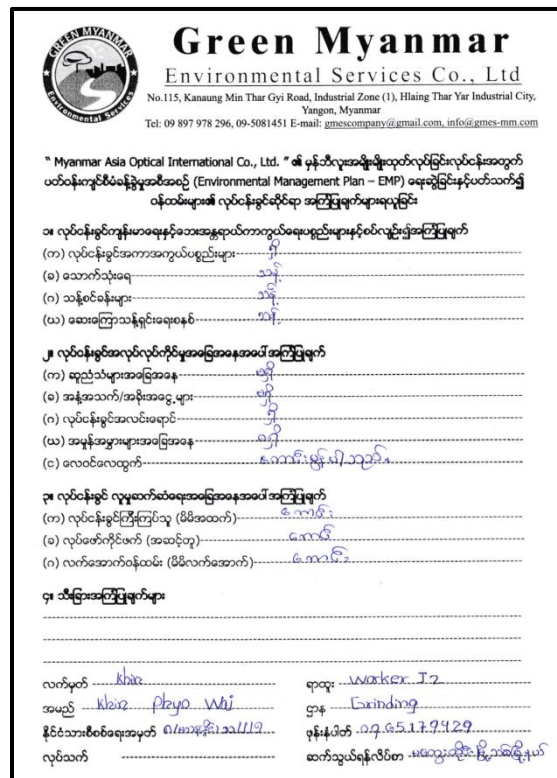 GREEN MYANMAR
Environmental Services
Green Myanmar
Environmental Services Co., Ltd
No.115, Kanaung Min Thar Gyi Road, Industrial Zone (1), Hlaing Thar Yar Industrial City,
Yangon, Myanmar
Tel: 09 897 978 296, 09-5081451 E-mail: gmescompany@gmail.com, info@gmes-mm.com
" Myanmar Asia Optical International Co., Ltd. " ၏ မှန်ဘီလူးအမျိုးမျိုးထုတ်လုပ်ခြင်းလုပ်ငန်းအတွက်
ပတ်ဝန်းကျင်စီမံခန့်ခွဲမှုအစီအစဉ် (Environmental Management Plan – EMP) ရေးဆွဲခြင်းနှင့်ပတ်သက်၍
ဝန်ထမ်းများ၏ လုပ်ငန်းခွင်ဆိုင်ရာ အကြံပြုချက်များရယူခြင်း
၁။ လုပ်ငန်းခွင်ကျန်းမာရေးနှင့်ဘေးအန္တရာယ်ကာကွယ်ရေးပစ္စည်းများနှင့်စပ်လျဉ်း၍အကြံပြုချက်
(က) လုပ်ငန်းခွင်အကာအကွယ်ပစ္စည်းများ ရှိ
(ခ) သောက်သုံးရေ သန့်
(ဂ) သန့်စင်ခန်းများ သန့်
(ဃ) ဆေးကြောသန့်ရှင်းရေးစနစ် သန့်
၂။ လုပ်ငန်းခွင်အလုပ်လုပ်ကိုင်မှုအခြေအနေအပေါ် အကြံပြုချက်
(က) ဆူညံသံများအခြေအနေ မရှိ
(ခ) အနံ့အသက်/အခိုးအငွေ့များ မရှိ
(ဂ) လုပ်ငန်းခွင်အလင်းရောင် ရှိ
(ဃ) အမှုန်အမွှားများအခြေအနေ မရှိ
(င) လေဝင်လေထွက် ကောင်းမွန်ပါသည်။
၃။ လုပ်ငန်းခွင် လူမှုဆက်ဆံရေးအခြေအနေအပေါ် အကြံပြုချက်
(က) လုပ်ငန်းခွင်ကြီးကြပ်သူ (မိမိအထက်) ကောင်း
(ခ) လုပ်ဖော်ကိုင်ဖက် (အဆင့်တူ) ကောင်း
(ဂ) လက်အောက်ဝန်ထမ်း (မိမိလက်အောက်) ကောင်း
၄။ သီးခြားအကြံပြုချက်များ
လက်မှတ် Khin ရာထူး Worker J2
အမည် Khin Phyo Wai ဌာန Grinding
နိုင်ငံသားစိစစ်ရေးအမှတ် ဖုန်းနံပါတ် 09 65179429
လုပ်သက် ဆက်သွယ်ရန်လိပ်စာ